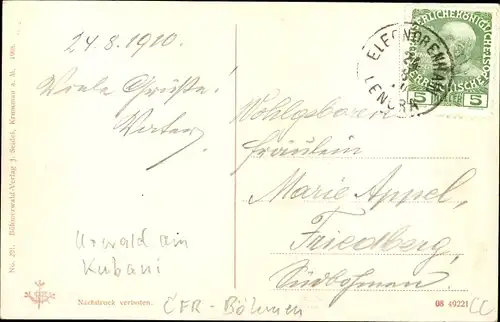 24.8.1910.
Viele Grüße!
Vater
ELEONORENHAIN
24
8
LENORA
KAISERLICHE KÖNIGLICHE
ÖSTERREICHISCHE POST
5 HELLER 5
Wohlgeboren
Fräulein
Marie Appel,
Friedberg,
Südböhmen.
Urwald am
Kubani
ČFR - Böhmen
No. 201. Böhmerwald-Verlag J. Seidel, Krummau a. M. 1908.
Nachdruck verboten.
08 49221
CC